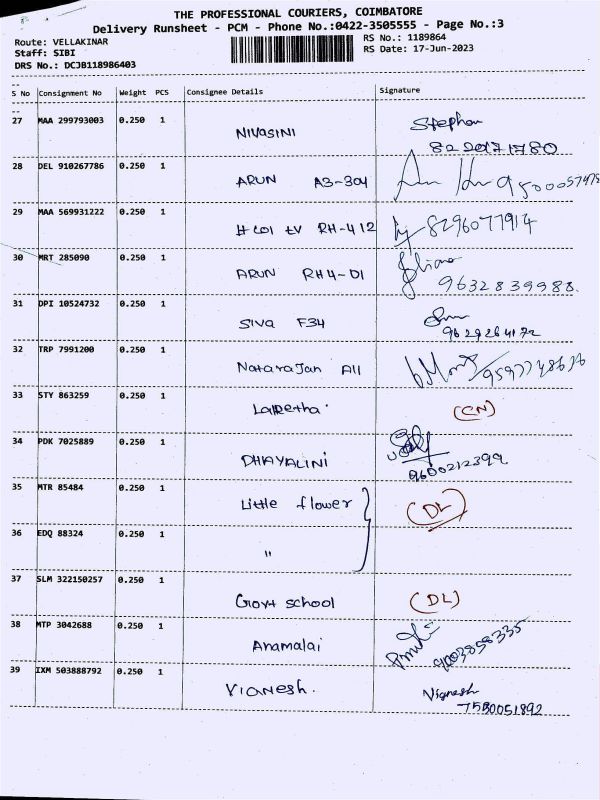 THE PROFESSIONAL COURIERS, COIMBATORE
Delivery Runsheet - PCM - Phone No.:0422-3505555 - Page No.:3
Route: VELLAKINAR
Staff: SIBI
DRS No.: DCJB118986403
RS No.: 1189864
RS Date: 17-Jun-2023
S No Consignment No Weight PCS Consignee Details Signature
27 MAA 299793003 0.250 1 NIVASINI Stephan
28 DEL 910267786 0.250 1 ARUN A3-304
29 MAA 569931222 0.250 1 RH-412 8296077914
30 MRT 285090 0.250 1 ARUN RH4-01 9632839988
31 DPI 10524732 0.250 1 SIVA F34 9629264172
32 TRP 7991200 0.250 1 Natarajan A11
33 STY 863259 0.250 1 (CN)
34 PDK 7025889 0.250 1 DHAYALINI 9600212399
35 MTR 85484 0.250 1 Little flower (DL)
36 EDQ 88324 0.250 1 "
37 SLM 322150257 0.250 1 Govt school (DL)
38 MTP 3042688 0.250 1 Anamalai 9003858335
39 IXM 503888792 0.250 1 VIGNESH. Vignesh
7550051892